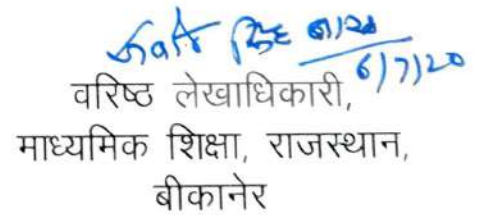 6/7/20
वरिष्ठ लेखाधिकारी,
माध्यमिक शिक्षा, राजस्थान,
बीकानेर